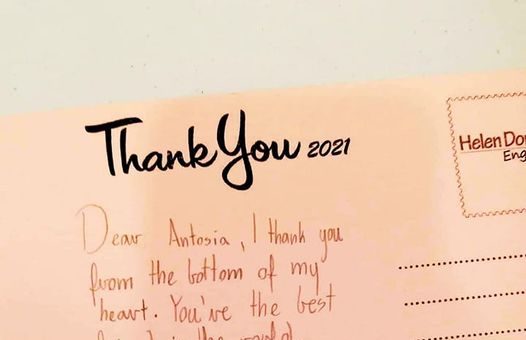 Thank You 2021
Helen Do
Eng
Dear Antosia, I thank you
from the bottom of my
heart. You've the best
in the world